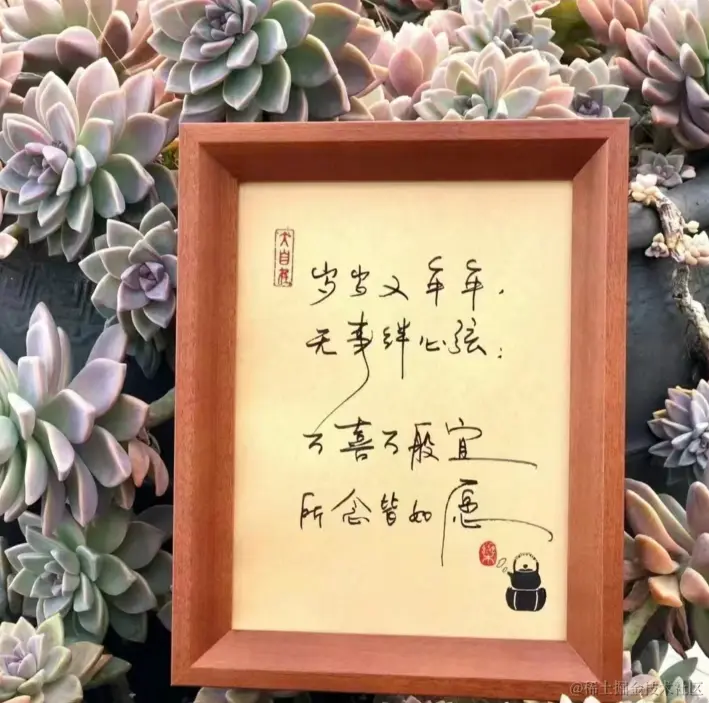 大自在
岁岁又年年,
无事绊心弦;
万喜万般宜
所念皆如愿
@稀土掘金技术社区